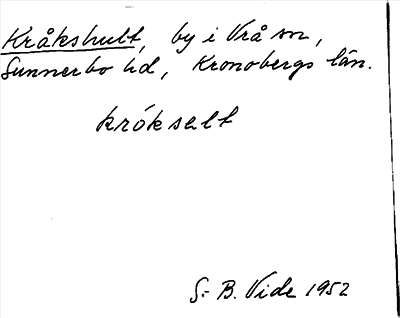 Kråkshult, by i Vrå sn,
Sunnerbo hd, Kronobergs län.
krókselt
S.-B. Vide 1952